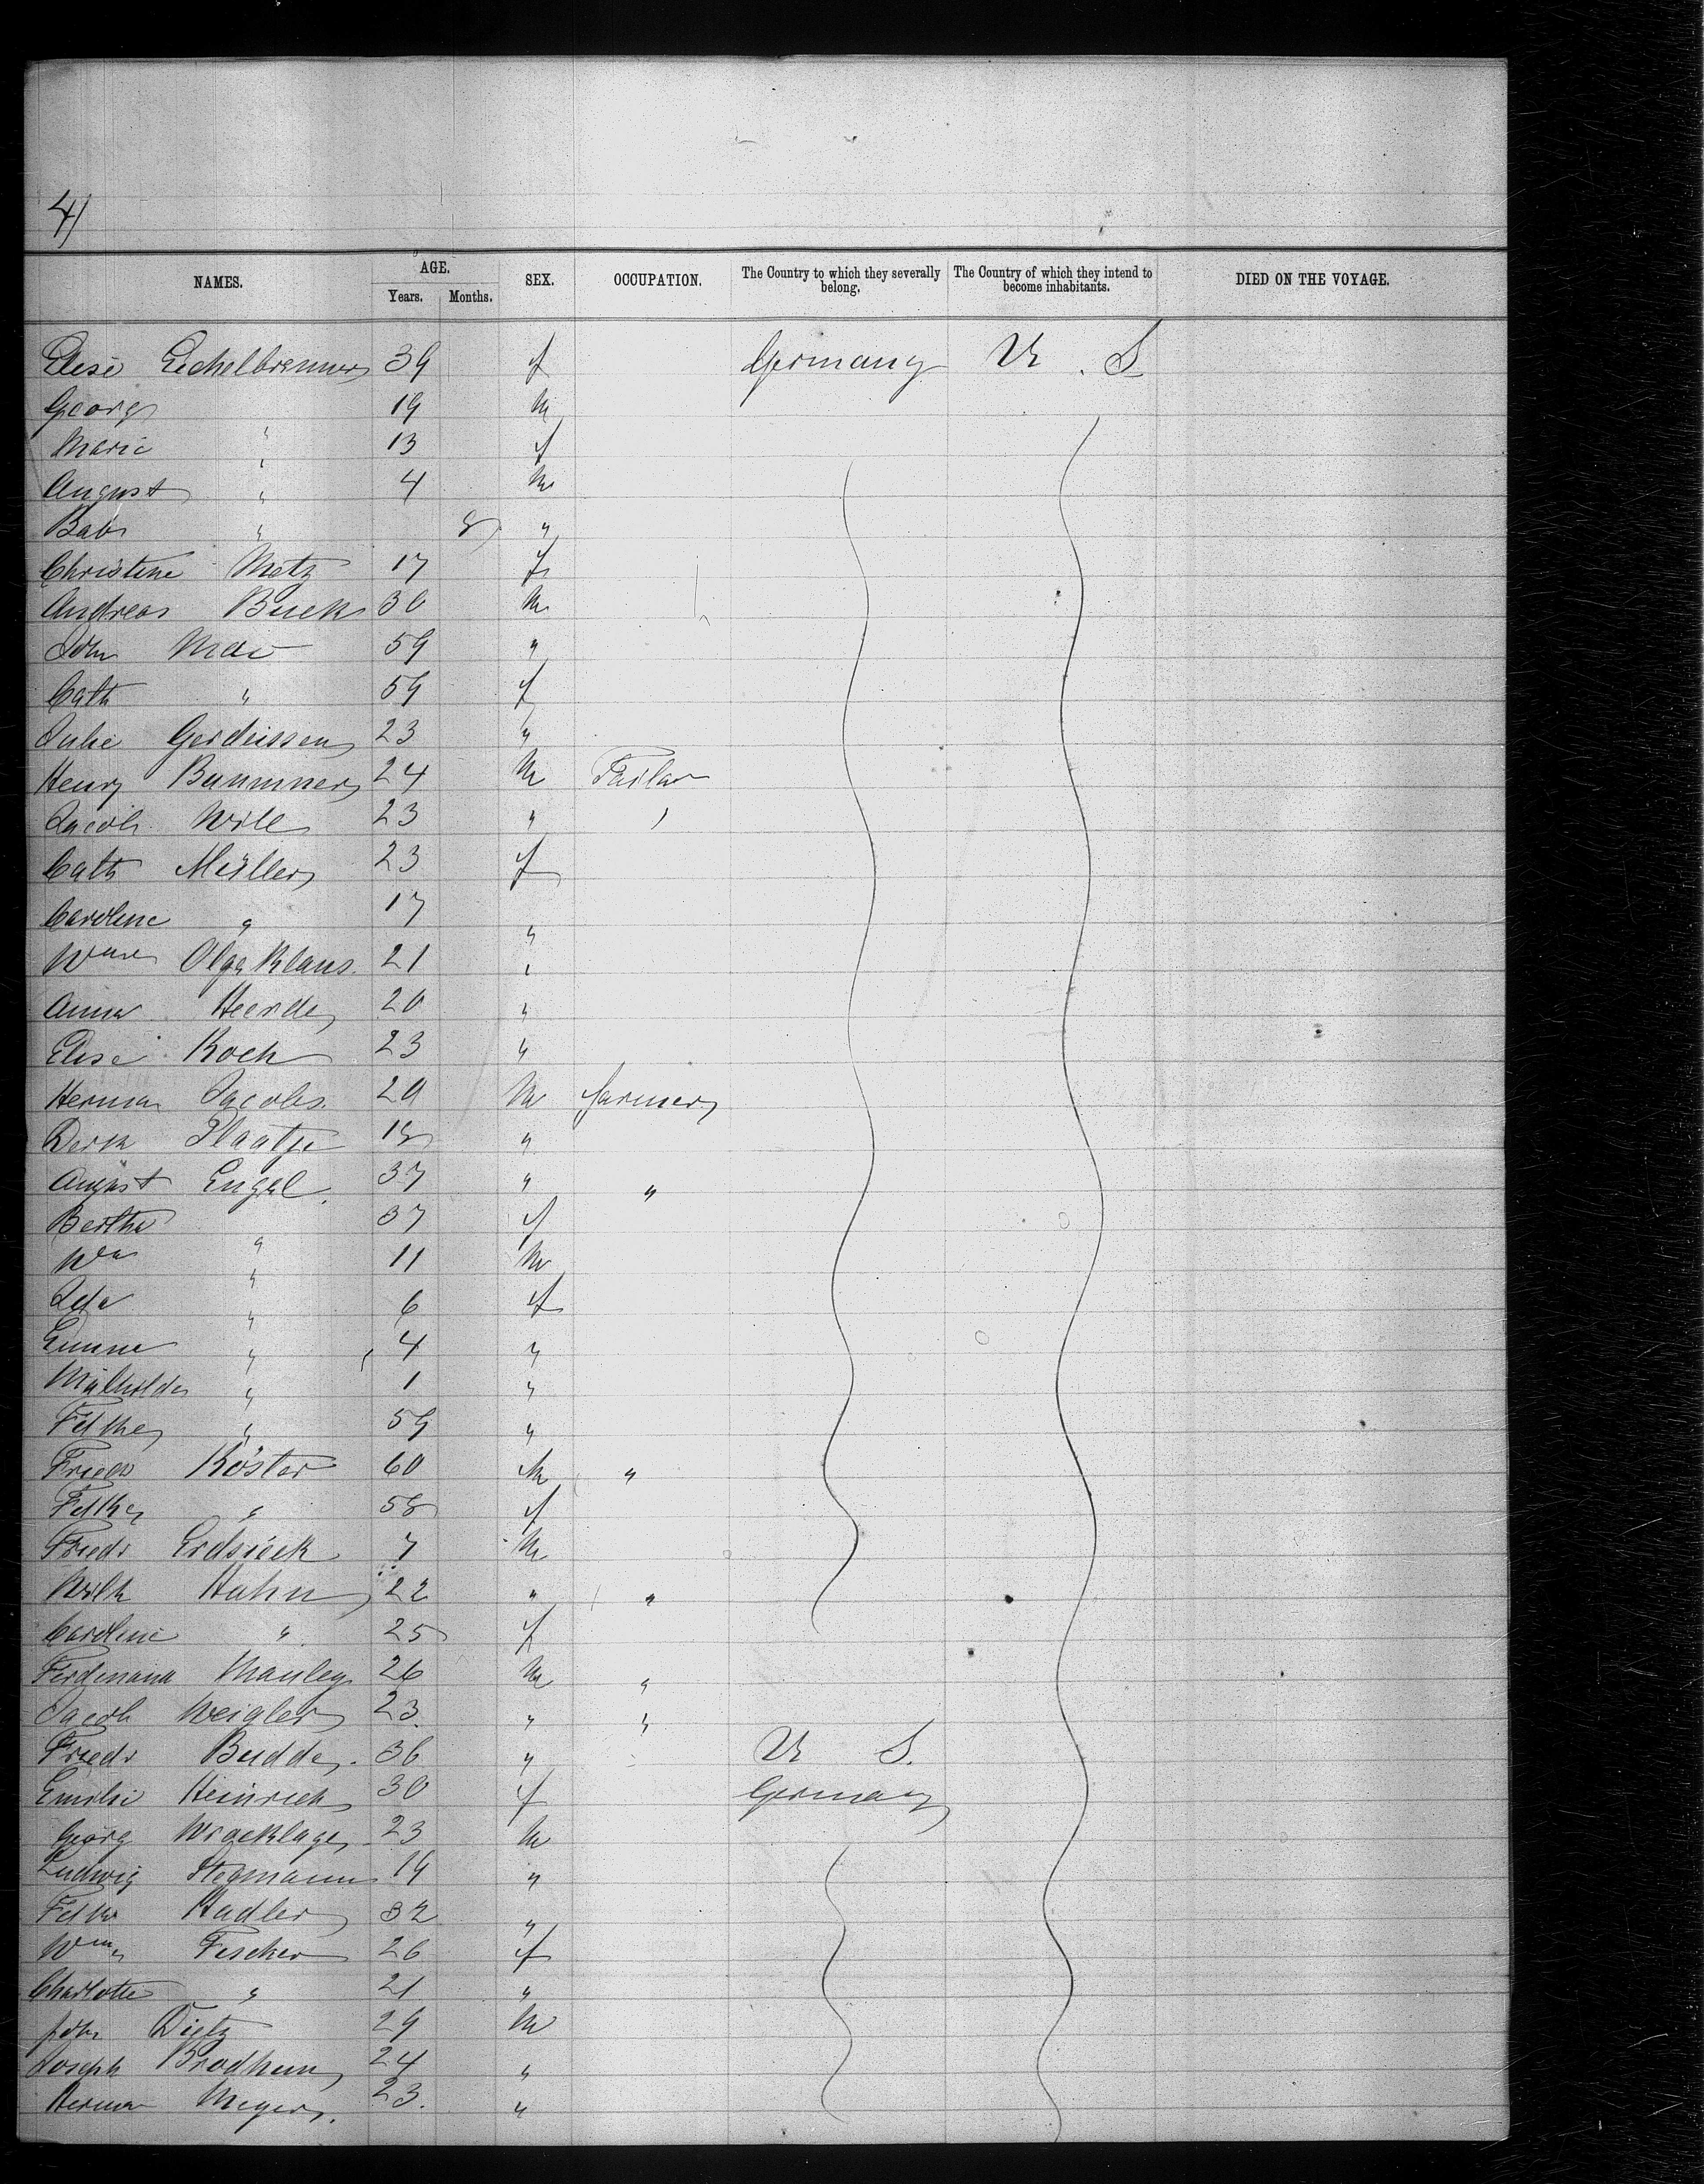 4)
NAMES. AGE. Years. Months. SEX. OCCUPATION. The Country to which they severally belong. The Country of which they intend to become inhabitants. DIED ON THE VOYAGE.
Elise Eichelbrenner 39 f Germany U. S.
Georg 19 m
Marie " 13 f
August " 4 m
Bab " 8 "
Christine Metz 17 f
Andreas Buck 30 m
John 59 "
Cath " 59 f
Julie Gerdeissen 23 "
Henry Bummner 24 m Tailor
Jacob Will 23 " "
Cath Müller 23 f
Caroline " 17 "
Olga Klaus. 21 "
Anna Heerde 20 "
Elise Koch 23 "
Herman Jacobs. 20 m farmer
Derk Plaatje 18 "
August Engel. 37 " "
Bertha " 37 f
Wm " 11 m
Ida " 6 f
Emma " 4 "
Mathilde " 1 "
" 59 "
Friedr Köster 60 m "
" 58 f
Friedr Erdsieck 7 m
Wilh Hahn 22 " "
Caroline " 25 f
Ferdinand Manley 26 m "
Jacob Weigler 23. " "
Friedr Budde. 36 " U S.
Emilie Heinrich 30 f Germany
Georg Wracklage 23 m
Ludwig Stegmann 19 "
Hadler 32 "
Fischer 26 f
Charlotte " 21 "
John Dietz 29 m
Joseph Brodhun 24 "
Herman Meyer. 23. "